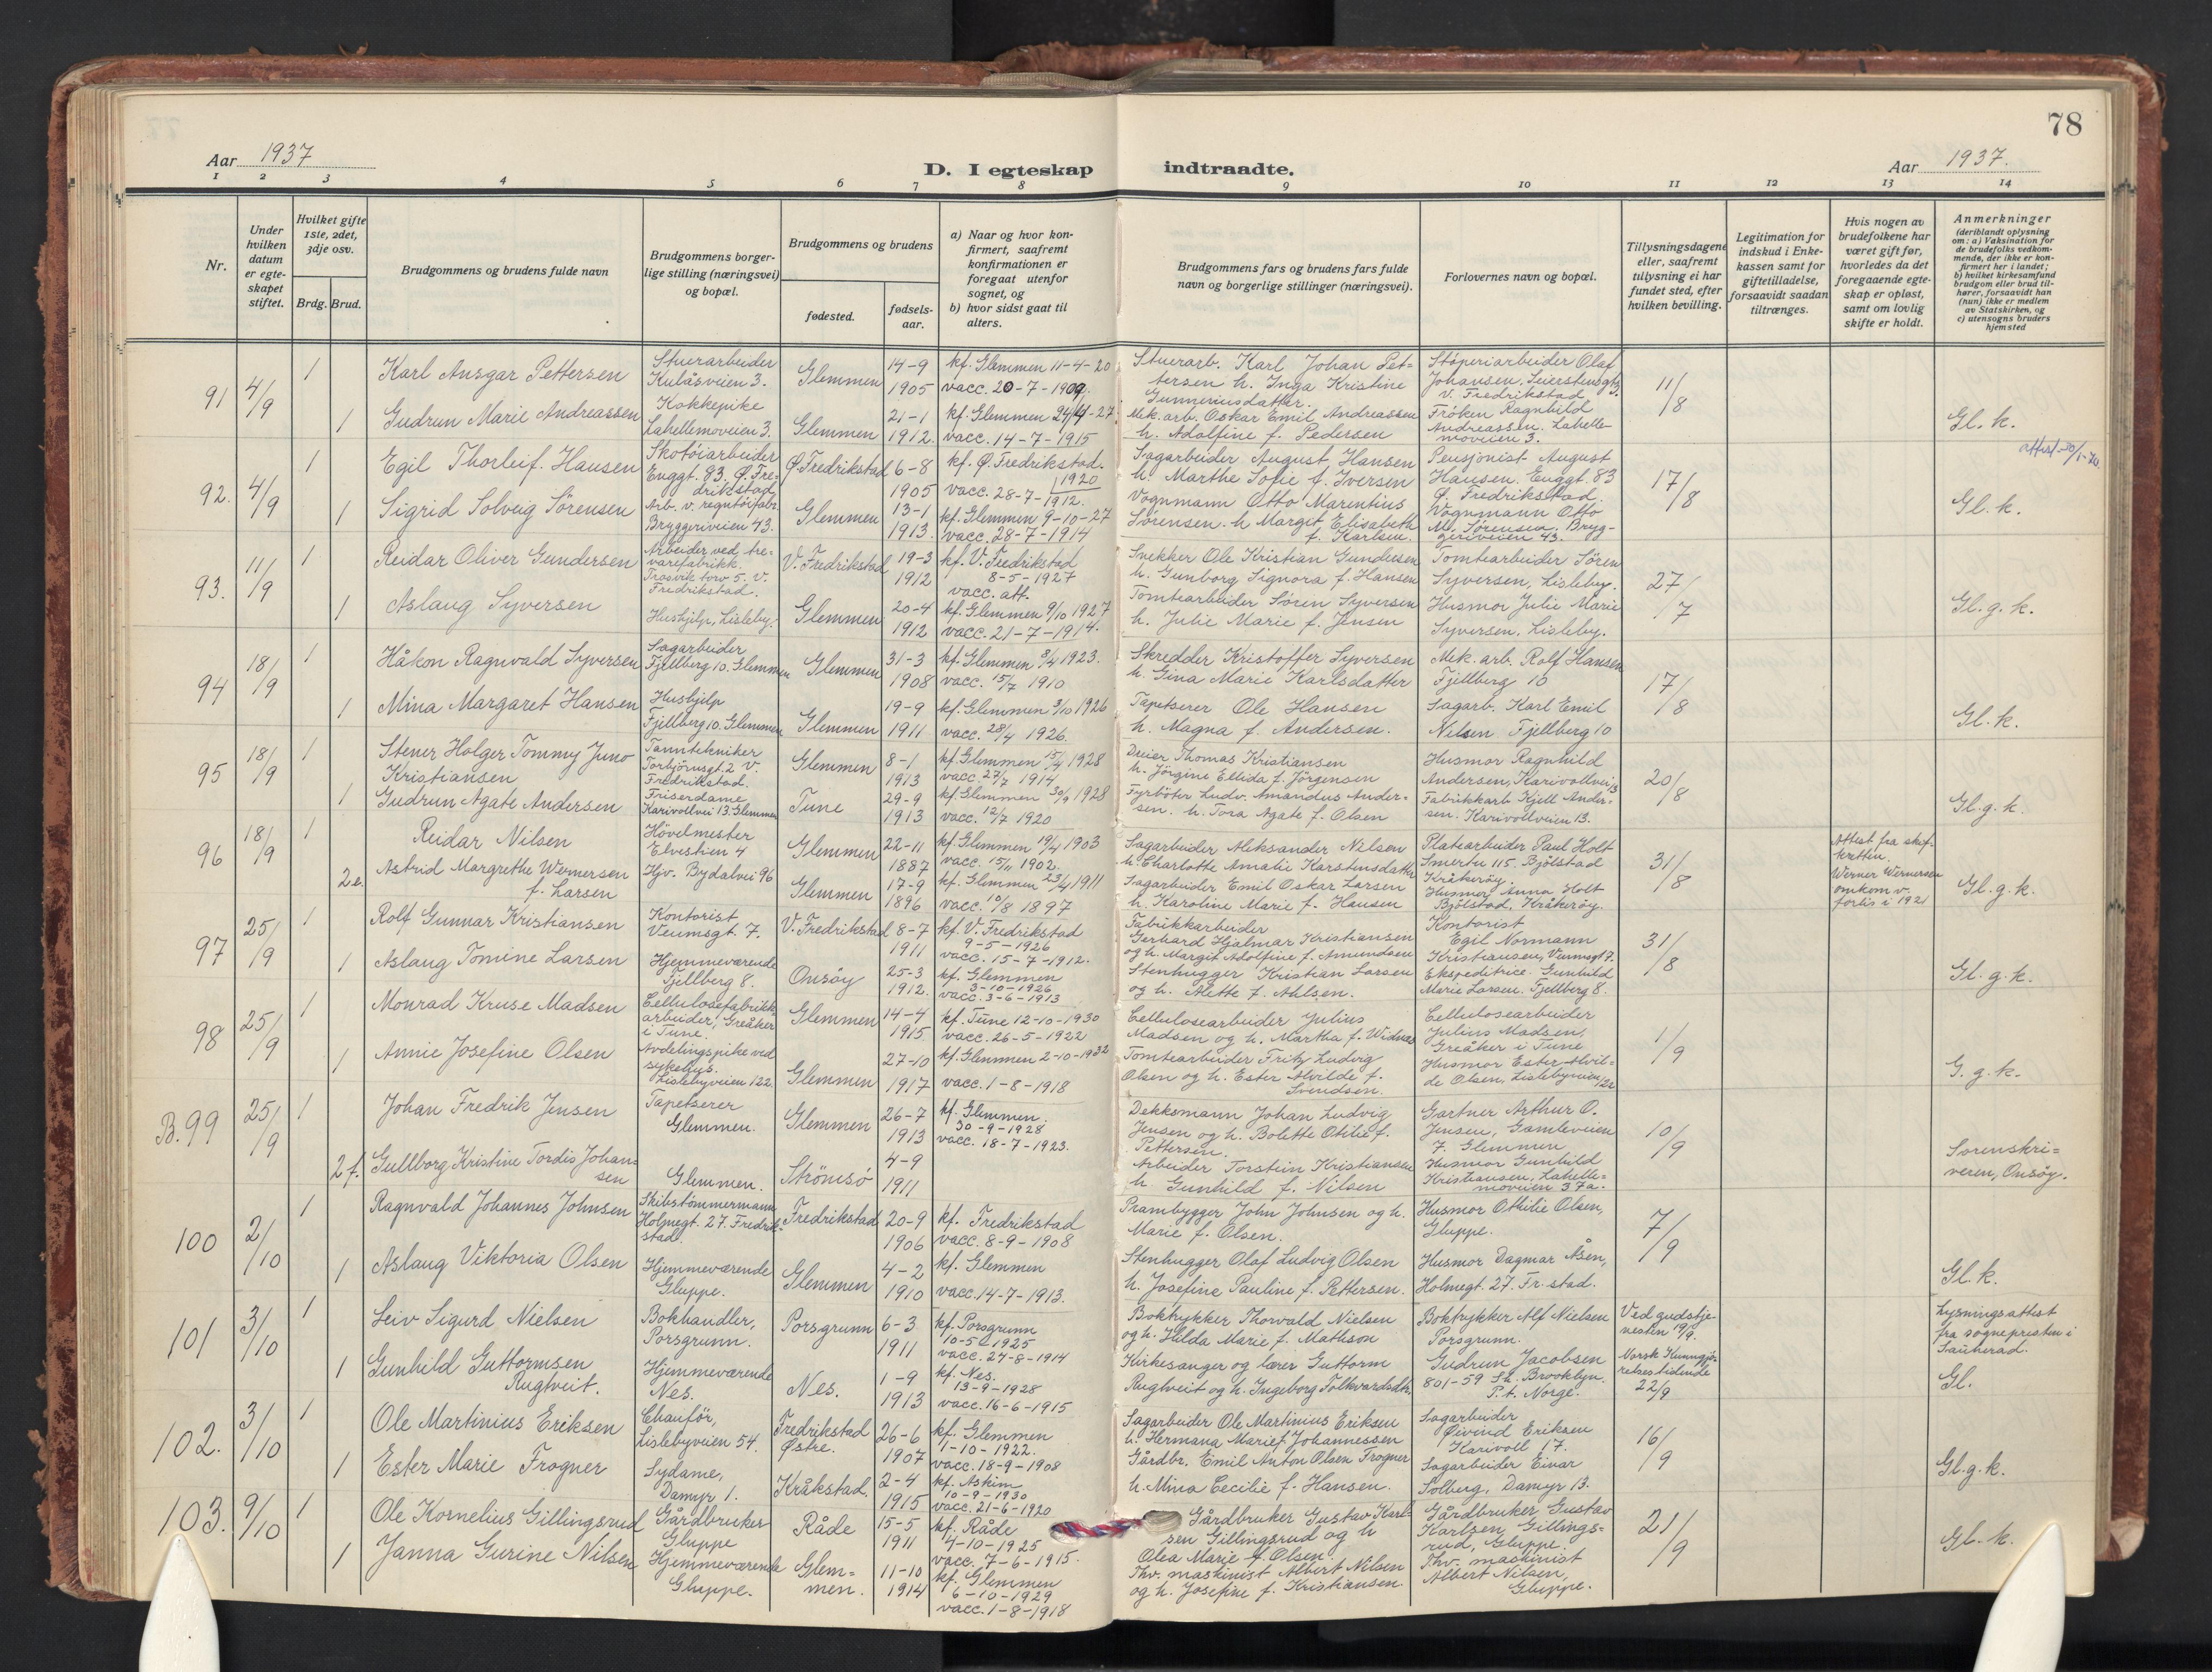 78
Aar 1937
D. I egteskap indtraadte.
Aar 1937.
1 2 3 4 5 6 7 8 9 10 11 12 13 14
Nr.
Under hvilken datum er egteskapet stiftet.
Hvilket gifte 1ste, 2det, 3dje osv.
Brdg. Brud.
Brudgommens og brudens fulde navn
Brudgommens borgerlige stilling (næringsvei) og bopæl.
Brudgommens og brudens
fødested.
fødselsaar.
a) Naar og hvor konfirmert, saafremt konfirmationen er foregaat utenfor sognet, og
b) hvor sidst gaat til alters.
Brudgommens fars og brudens fars fulde navn og borgerlige stillinger (næringsvei).
Forlovernes navn og bopæl.
Tillysningsdagene eller, saafremt tillysning ei har fundet sted, efter hvilken bevilling.
Legitimation for indskud i Enkekassen samt for giftetilladelse, forsaavidt saadan tiltrænges.
Hvis nogen av brudefolkene har været gift før, hvorledes da det foregaaende egteskap er opløst, samt om lovlig skifte er holdt.
Anmerkninger
(deriblandt oplysning om: a) Vaksination for de brudefolks vedkommende, der ikke er konfirmert her i landet; b) hvilket kirkesamfund brudgom eller brud tilhører, forsaavidt han (hun) ikke er medlem av Statskirken, og c) utensogns bruders hjemsted
91 4/9 1 Karl Ansgar Pettersen Stuerarbeider Kulåsveien 3. Glemmen 14-9 1905 kf. Glemmen 11-4-20 vacc. 20-7-1909. Stuerarb. Karl Johan Pettersen h. Inga Kristine Gunneriusdatter. Støperiarbeider Olaf Johansen, V. Fredrikstad 11/8
1 Gudrun Marie Andreassen Kokkepike Lahellemoveien 3. Glemmen 21-1 1912. kf. Glemmen 24/4-27 vacc. 14-7-1915 Mek. arb. Oskar Emil Andreassen h. Adolfine f. Pedersen Frøken Ragnhild Andreassen. Lahellemoveien 3. Gl. k.
92. 4/9 1 Egil Thorleif. Hansen Skotøiarbeider Enggt. 83. Ø. Fredrikstad Ø. Fredrikstad 6-8 1905 kf. Ø. Fredrikstad. 1920 vacc. 28-7-1912. Sagarbeider August Hansen h. Marthe Sofie f. Iversen Pensjonist August Hansen. Enggt. 83 Ø. Fredrikstad. 17/8
1 Sigrid Solveig Sørensen Arb. v. regntøifabr. Bryggeriveien 43. Glemmen 13-1 1913. kf. Glemmen 9-10-27 vacc. 28-7-1914 Vognmann Otto Marentius Sørensen. h Margit Elisabeth f. Karlsen. Vognmann Otto M. Sørensen. Bryggeriveien 43. Gl. k.
93. 11/9 1 Reidar Oliver Gundersen Arbeider ved trevarefabrikk. Trosvik torv 5. V. Fredrikstad. V. Fredrikstad 19-3 1912 kf. V. Fredrikstad 8-5-1927 vacc. att. Snekker Ole Kristian Gundersen h. Gunborg Signora f. Hansen Tomtearbeider Søren Syversen, Lisleby. 27/7
1 Aslaug Syversen Hushjelp, Lisleby. Glemmen 20-4 1912 kf. Glemmen 9/10 1927 vacc. 21-7-1914. Tomtearbeider Søren Syversen h. Julie Marie f. Jensen Husmor Julie Marie Syversen. Lisleby. Gl. g. k.
94 18/9 1 Håkon Ragnvald Syversen Sagarbeider Fjellberg 10. Glemmen Glemmen 31-3 1908 kf. Glemmen 8/4 1923. vacc. 15/7 1910 Skredder Kristoffer Syversen h. Gina Marie Karlsdatter Mek. arb. Rolf Hansen Fjellberg 10 17/8
1 Mina Margaret Hansen Hushjelp Fjellberg 10. Glemmen Glemmen 19-9 1911 kf. Glemmen 3/10 1926 vacc. 28/4 1926. Tapetserer Ole Hansen h. Magna f. Andersen. Sagarb. Karl Emil Nilsen Fjellberg 10 Gl. k.
95 18/9 1 Stener Holger Tommy Juno Kristiansen Tanntekniker Torbjørnsgt. 2 V. Fredrikstad. Glemmen 8-1 1913 kf. Glemmen 15/4 1928 vacc. 27/7 1914 Dreier Thomas Kristiansen h. Jørgine Ellida f. Jørgensen Husmor Ragnhild Andersen, Karivollvei 13 20/8
1 Gudrun Agate Andersen Friserdame Karivollvei 13. Glemmen Tune 29-9 1913 kf. Glemmen 30/9 1928 vacc. 12/7 1920 Fyrbøter Ludv. Amandus Andersen. h. Tora Agate f. Olsen Fabrikkarb. Kjell Andersen. Karivollveien 13. Gl. g. k.
96 18/9 1 Reidar Nilsen Høvelmester Elvestien 4 Glemmen 22-11 1887 kf. Glemmen 19/4 1903 vacc. 15/11 1902. Sagarbeider Aleksander Nilsen h. Charlotte Amalie Karstensdatter Platearbeider Paul Holt Smertu 115. Bjølstad Kråkerøy. 31/8 Attest fra skifteretten. Werner Wernersen omkom v. forlis i 1921
2 e. Astrid Margrethe Wernersen f. Larsen Hjv. Bydalvei 96 Glemmen 17-9 1896 kf. Glemmen 23/4 1911 vacc. 10/8 1897 Sagarbeider Emil Oskar Larsen h. Karoline Marie f. Hansen Husmor Anna Holt Bjølstad, Kråkerøy. Gl. g. k.
97 25/9 1 Rolf Gunnar Kristiansen Kontorist Veumsgt. 7. V. Fredrikstad 8-7 1911 kf. V. Fredrikstad 9-5-1926 vacc. 15-7-1912. Fabrikkarbeider Gerhard Hjalmar Kristiansen og h. Margit Adolfine f. Amundsen Kontorist Egil Normann Kristiansen, Veumsgt 7. 31/8
1 Aslaug Tomine Larsen Hjemmeværende Fjellberg 8. Onsøy 25-3 1912. kf. Glemmen 3-10-1926 vacc. 3-6-1913 Stenhugger Kristian Larsen og h. Alette f. Ahlsen. Ekspeditrice Gunhild Marie Larsen. Fjellberg 8. Gl. g. k.
98 25/9 1 Monrad Kruse Madsen Cellulosefabrikkarbeider, Greåker i Tune. Glemmen 14-4 1915 kf. Tune 12-10-1930 vacc. 26-5-1922 Cellulosearbeider Julius Madsen og h. Martha f. Widnes Cellulosearbeider Julius Madsen, Greåker i Tune 1/9
1 Annie Josefine Olsen Avdelingspike ved sykehys. Lislebyveien 122. Glemmen 27-10 1917 kf. Glemmen 2-10-1932 vacc. 1-8-1918 Tomtearbeider Fritz Ludvig Olsen og h. Ester Alvilde f. Svendsen. Husmor Ester Alvilde Olsen, Lislebyveien 122 G. g. k.
B. 99 25/9 1 Johan Fredrik Jensen Tapetserer Glemmen. Glemmen 26-7 1913 kf. Glemmen. 30-9-1928 vacc. 18-7-1923. Dekksmann Johan Ludvig Jensen og h. Bolette Otilie f. Pettersen. Gartner Arthur O. Jensen, Gamleveien 7. Glemmen 10/9
2 f. Gullborg Kristine Tordis Johansen Glemmen. Strömsö 4-9 1911 Arbeider Torstein Kristiansen h. Gunhild f. Nilsen Husmor Gunhild Kristiansen, Lahellemoveien 37a. Sorenskriveren, Onsøy.
100 2/10 1 Ragnvald Johannes Johnsen Skibstømmermann Holmegt. 27. Fredrikstad. Fredrikstad 20-9 1906 kf. Fredrikstad vacc. 8-9-1908 Prambygger John Johnsen og h. Marie f. Olsen. Husmor Othilie Olsen, Gluppe. 7/9
1 Aslaug Viktoria Olsen Hjemmeværende Gluppe. Glemmen 4-2 1910 kf. Glemmen vacc. 14-7-1913. Stenhugger Olaf Ludvig Olsen h. Josefine Pauline f. Pettersen. Husmor Dagmar Åsen, Holmegt. 27. Fr. stad. Gl. k.
101 3/10 1 Leiv Sigurd Nielsen Bokhandler, Porsgrunn. Porsgrunn 6-3 1911 kf. Porsgrunn 10-5-1925 vacc. 27-8-1914 Boktrykker Thorvald Nielsen og h. Hilda Marie f. Mathson Boktrykker Alf Nielsen Porsgrunn. Ved gudstjenesten 19/9. Lysningsattest fra sognepresten i Sauherad.
1 Gunhild Guttormsen Rugtveit. Hjemmeværende Nes. Nes. 1-9 1913 kf. Nes. 13-9-1928 vacc. 16-6-1915 Kirkesanger og lærer Guttorm Rugtveit og h. Ingeborg Folkvardsdtr. Gudrun Jacobsen 801-59 St. Brooklyn. P.t. Norge. Norsk Kunngjørelsestidende 22/9 Gl.
102. 3/10 1 Ole Martinius Eriksen Chauffør, Lislebyveien 54. Fredrikstad Østre. 26-6 1907 kf. Glemmen 1-10-1922. vacc. 18-9-1908 Sagarbeider Ole Martinius Eriksen h. Hermana Marie f. Johannessen Sagarbeider Øivind Eriksen Karivoll 17. 16/9
1 Ester Marie Frogner Sydame, Damyr 1. Kråkstad. 2-4 1915 kf. Askim 10-9-1930 vacc. 21-6-1920 Gårdbr. Emil Anton Olsen Frogner h. Mina Cecilie f. Hansen. Sagarbeider Einar Solberg, Damyr 13. Gl. g. k.
103. 9/10 1 Ole Kornelius Gillingsrud Gårdbruker Gluppe Råde 15-5 1911 kf. Råde 4-10-1925 vacc. 7-6-1915. Gårdbruker Gustav Karlsen Gillingsrud og h Olea Marie f. Olsen. Gårdbruker Gustav Karlsen Gillingsrud, Gluppe. 21/9
1 Janna Gurine Nilsen Hjemmeværende Gluppe. Glemmen. 11-10 1914 kf. Glemmen 6-10-1929 vacc. 1-8-1918 Thv. maskinist Albert Nilsen og h. Josefine f. Kristiansen. Thv. maskinist Albert Nilsen, Gluppe. Gl. k.